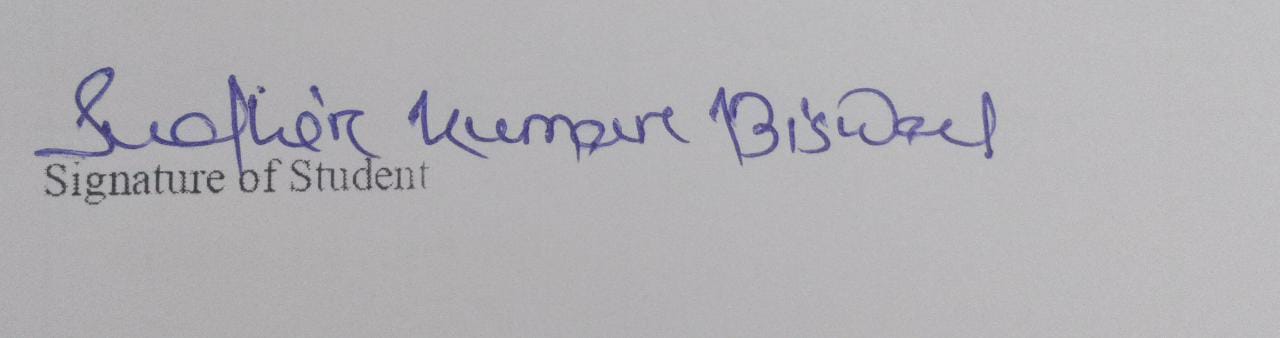 Sudhir Kumar Biswas
Signature of Student